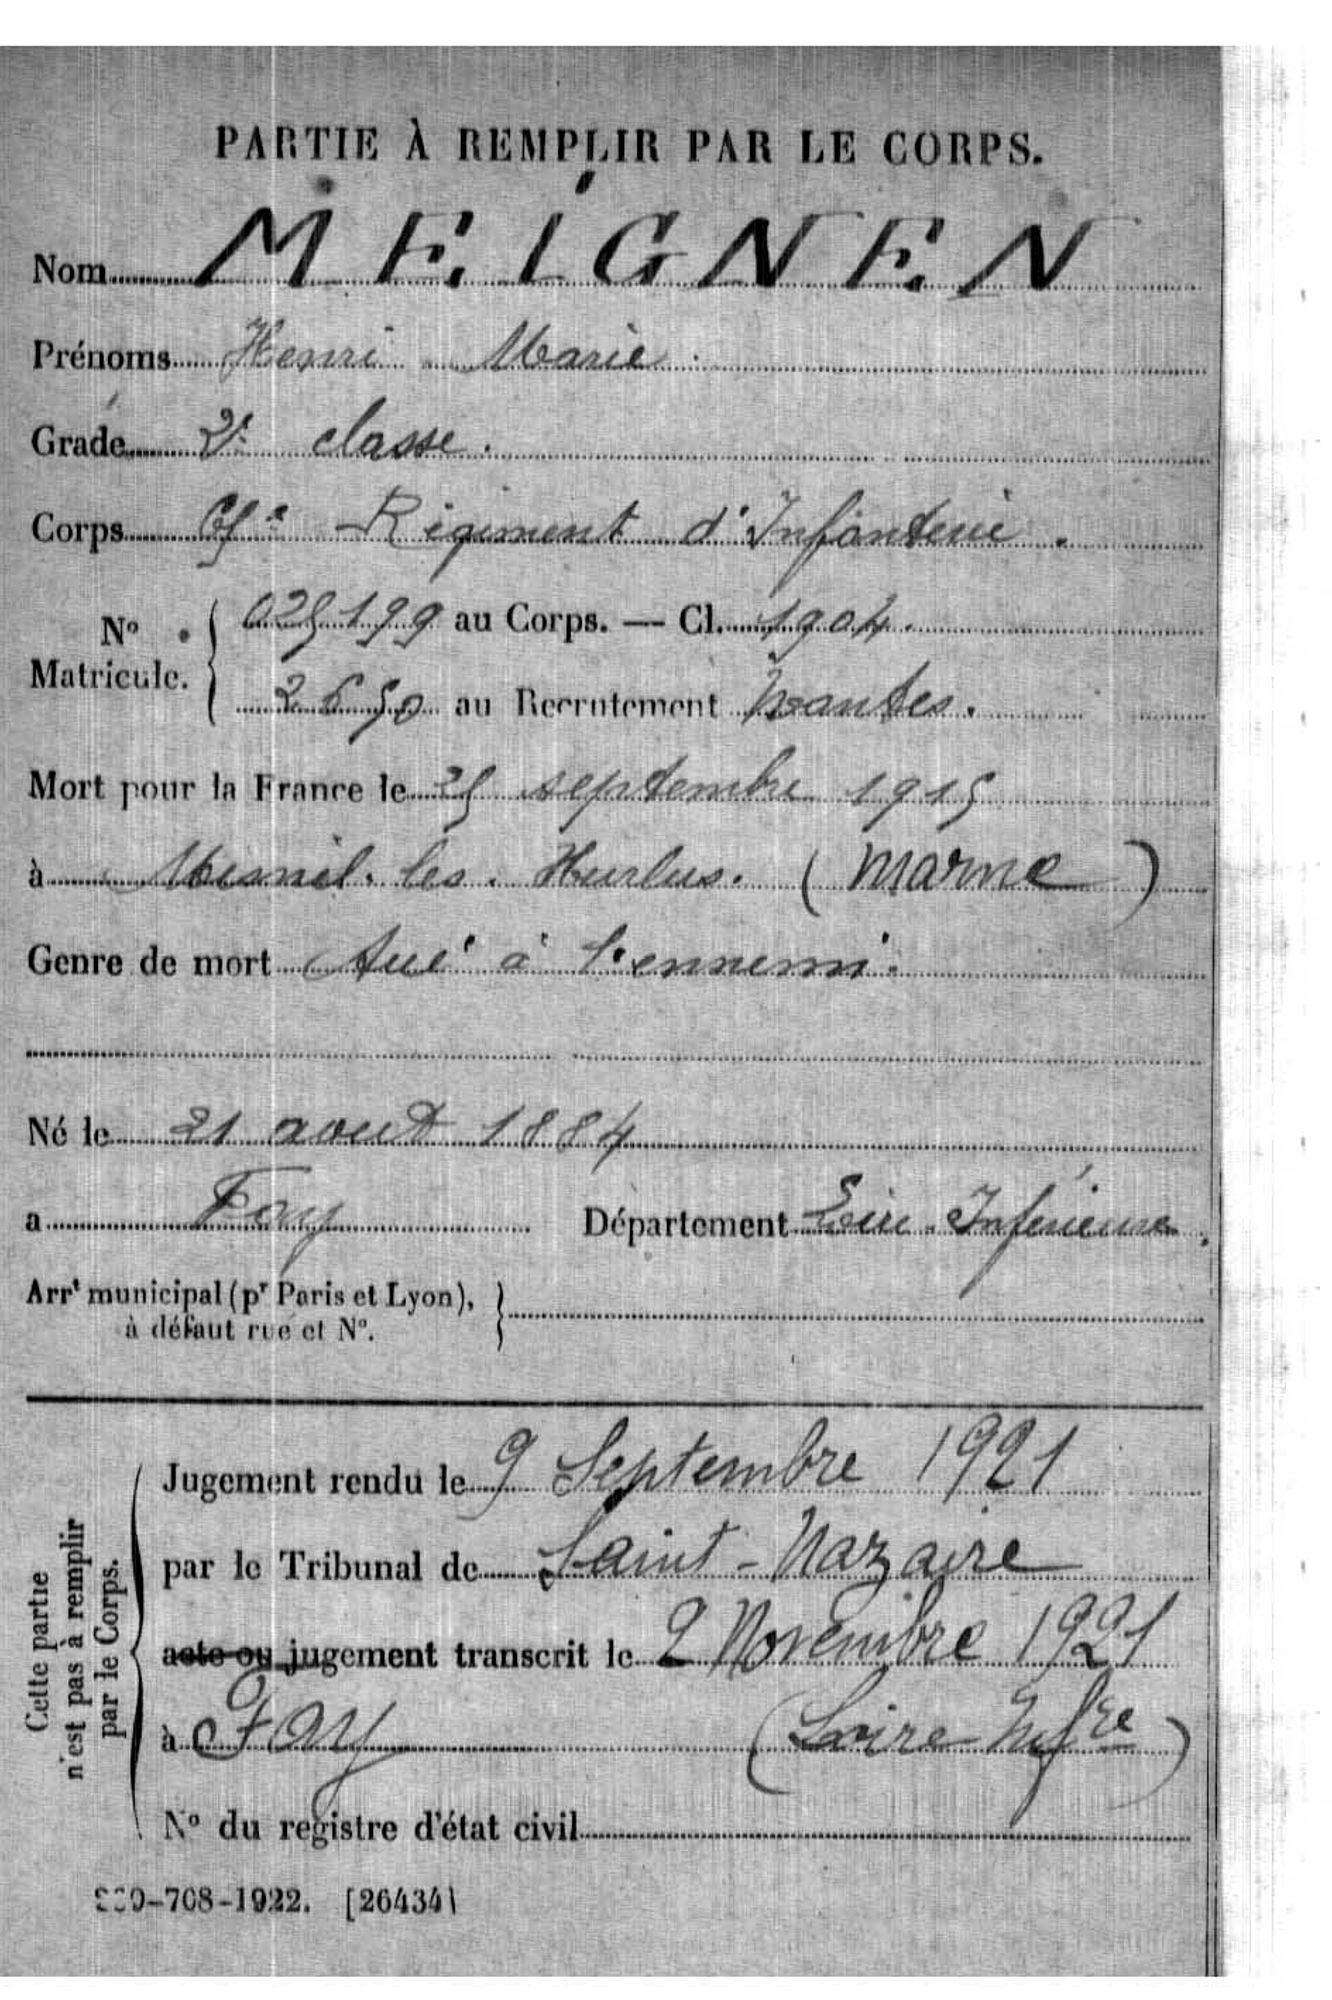 PARTIE À REMPLIR PAR LE CORPS.
Nom MEIGNEN
Prénoms Henri Marie.
Grade 2e classe.
Corps Régiment d'Infanterie.
N° Matricule. 025199 au Corps. — Cl. 1904.
2650 au Recrutement Nantes.
Mort pour la France le 25 septembre 1915
à Mesnil. les. Hurlus. (Marne)
Genre de mort Tué à l'ennemi.
Né le 21 aout 1884
a Fay Département Loire-Inférieure.
Arrt municipal (pr Paris et Lyon),
à défaut rue et N°.
Cette partie
n'est pas à remplir
par le Corps.
Jugement rendu le 9 Septembre 1921
par le Tribunal de Saint-Nazaire
acte ou jugement transcrit le 2 Novembre 1921
à Fay (Loire Infre)
N° du registre d'état civil
-708-1922. [26434]